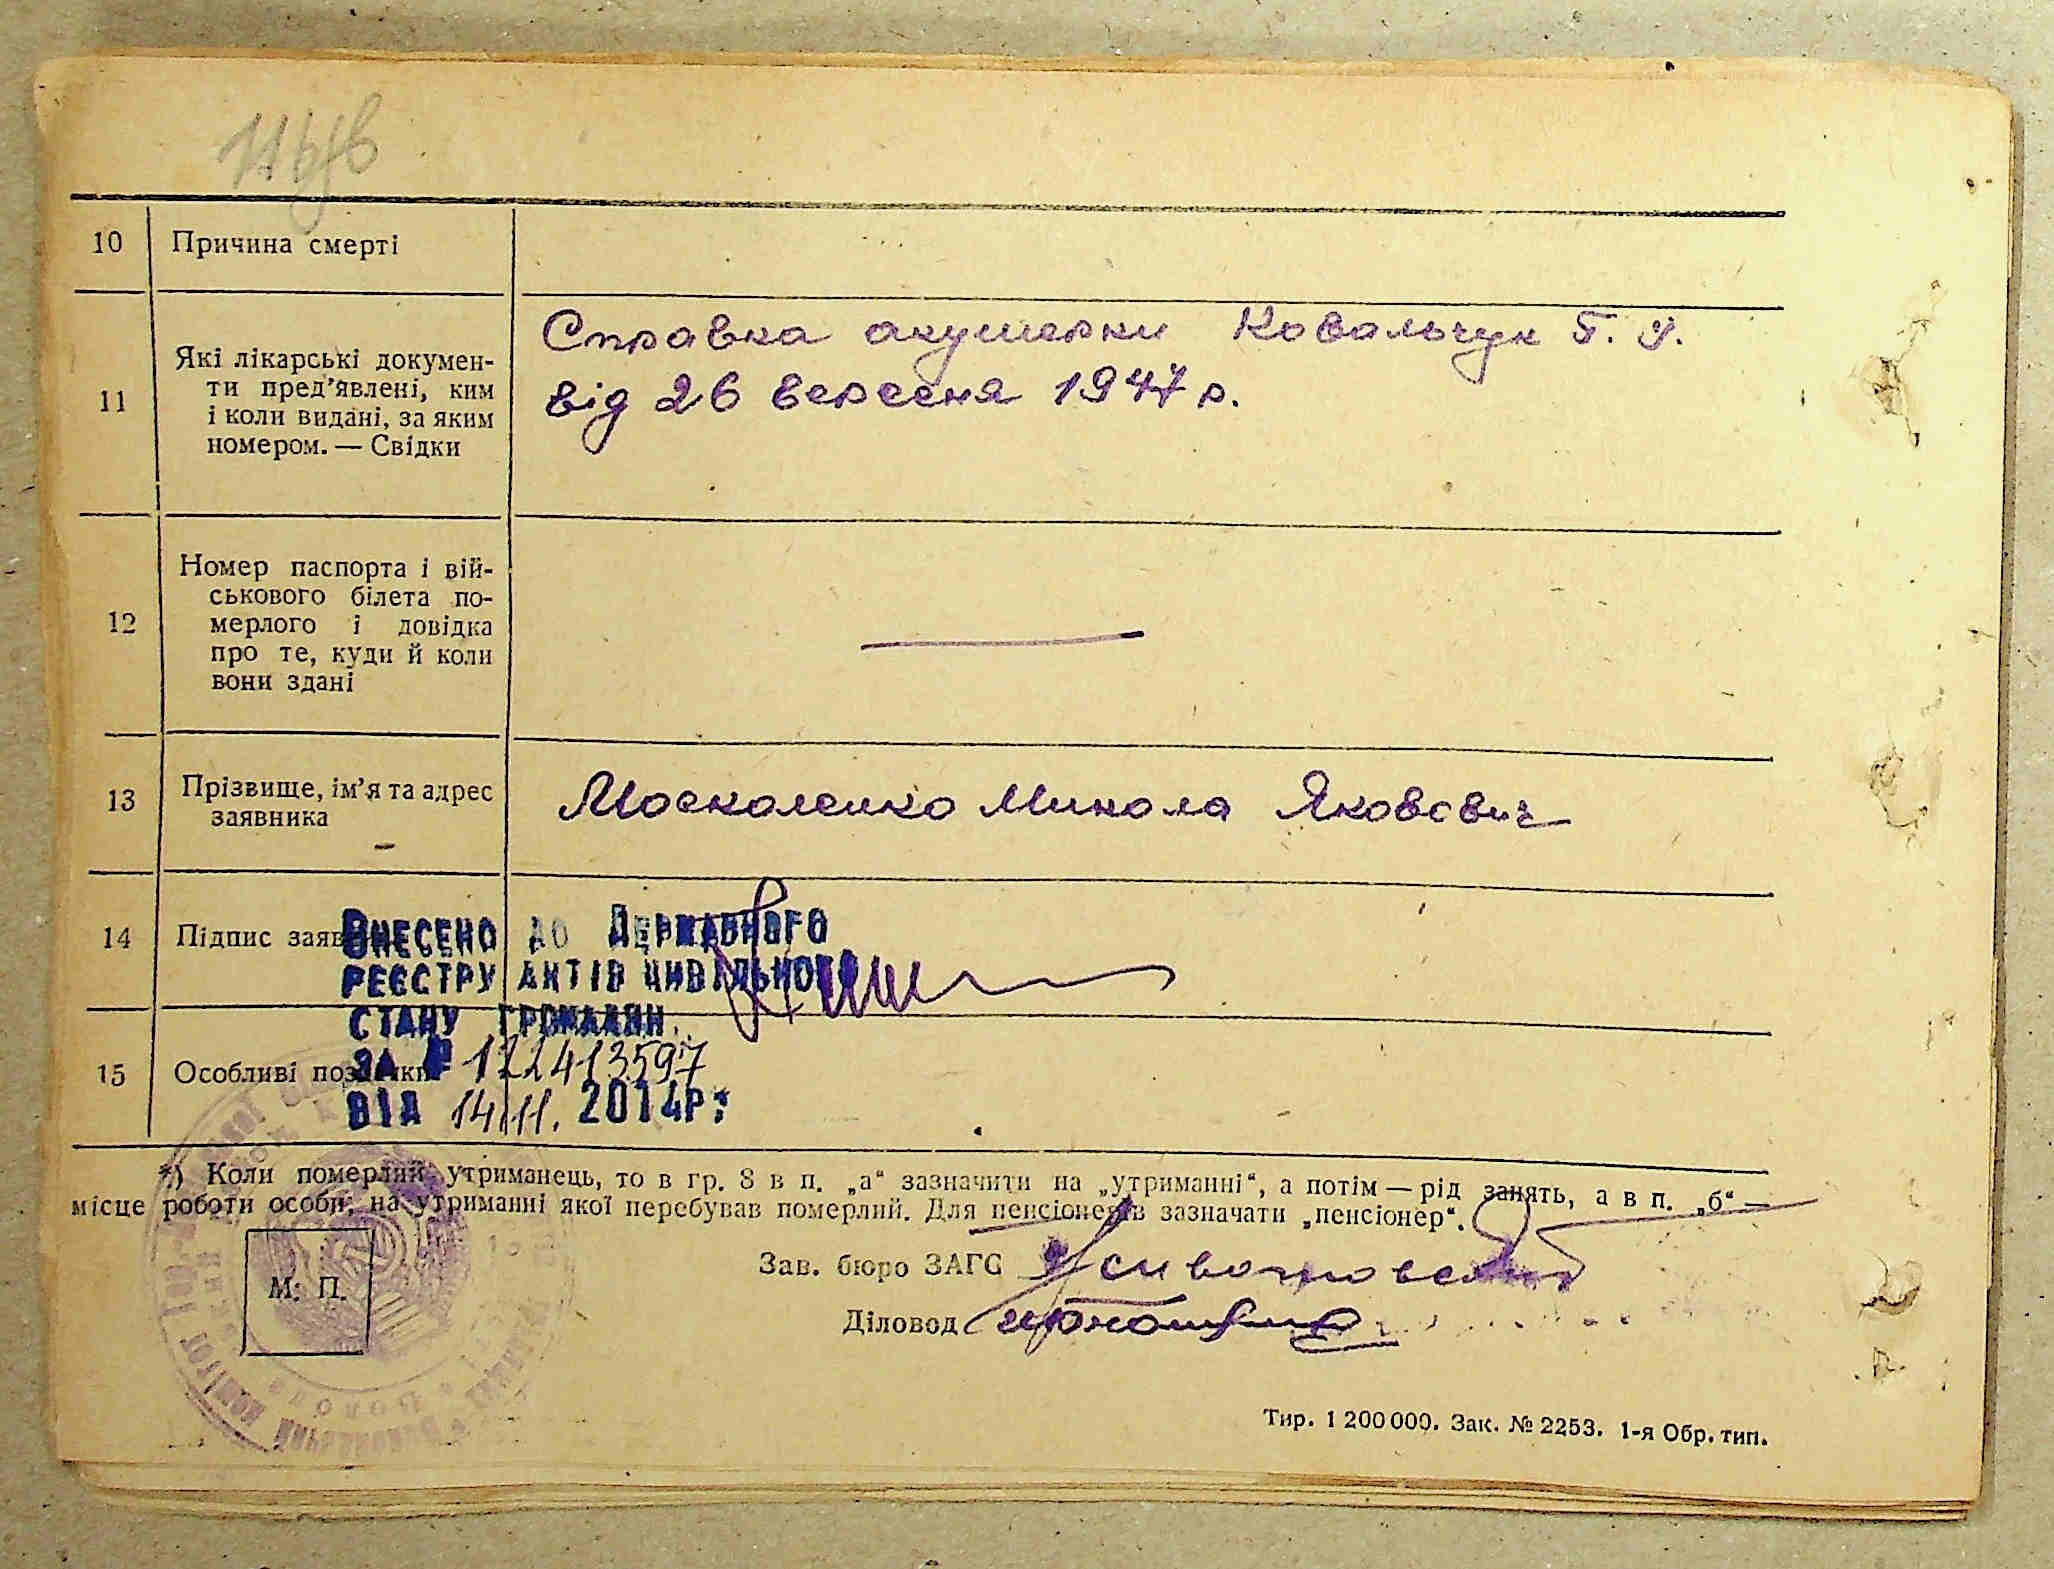 10 Причина смерті
11 Які лікарські докумен-
ти пред’явлені, ким
і коли видані, за яким
номером. — Свідки
Справка акушерки Ковальчук Т. У.
від 26 вересня 1947 р.
12 Номер паспорта і вій-
ськового білета по-
мерлого і довідка
про те, куди й коли
вони здані
13 Прізвище, ім’я та адрес
заявника
Москаленко Микола Яковєвич
14 Підпис
Внесено до Державного
реєстру актів цивільного
стану громадян
за № 122413597
від 14.11. 2014р.
15 Особливі позначки
*) Коли померлий утриманець, то в гр. 8 в п. „а“ зазначити на „утриманні“, а потім — рід занять, а в п. „б“ —
місце роботи особи, на утриманні якої перебував померлий. Для пенсіонерів зазначати „пенсіонер“.
М. П.
Зав. бюро ЗАГС
Діловод
Тир. 1 200 000. Зак. № 2253. 1-я Обр. тип.